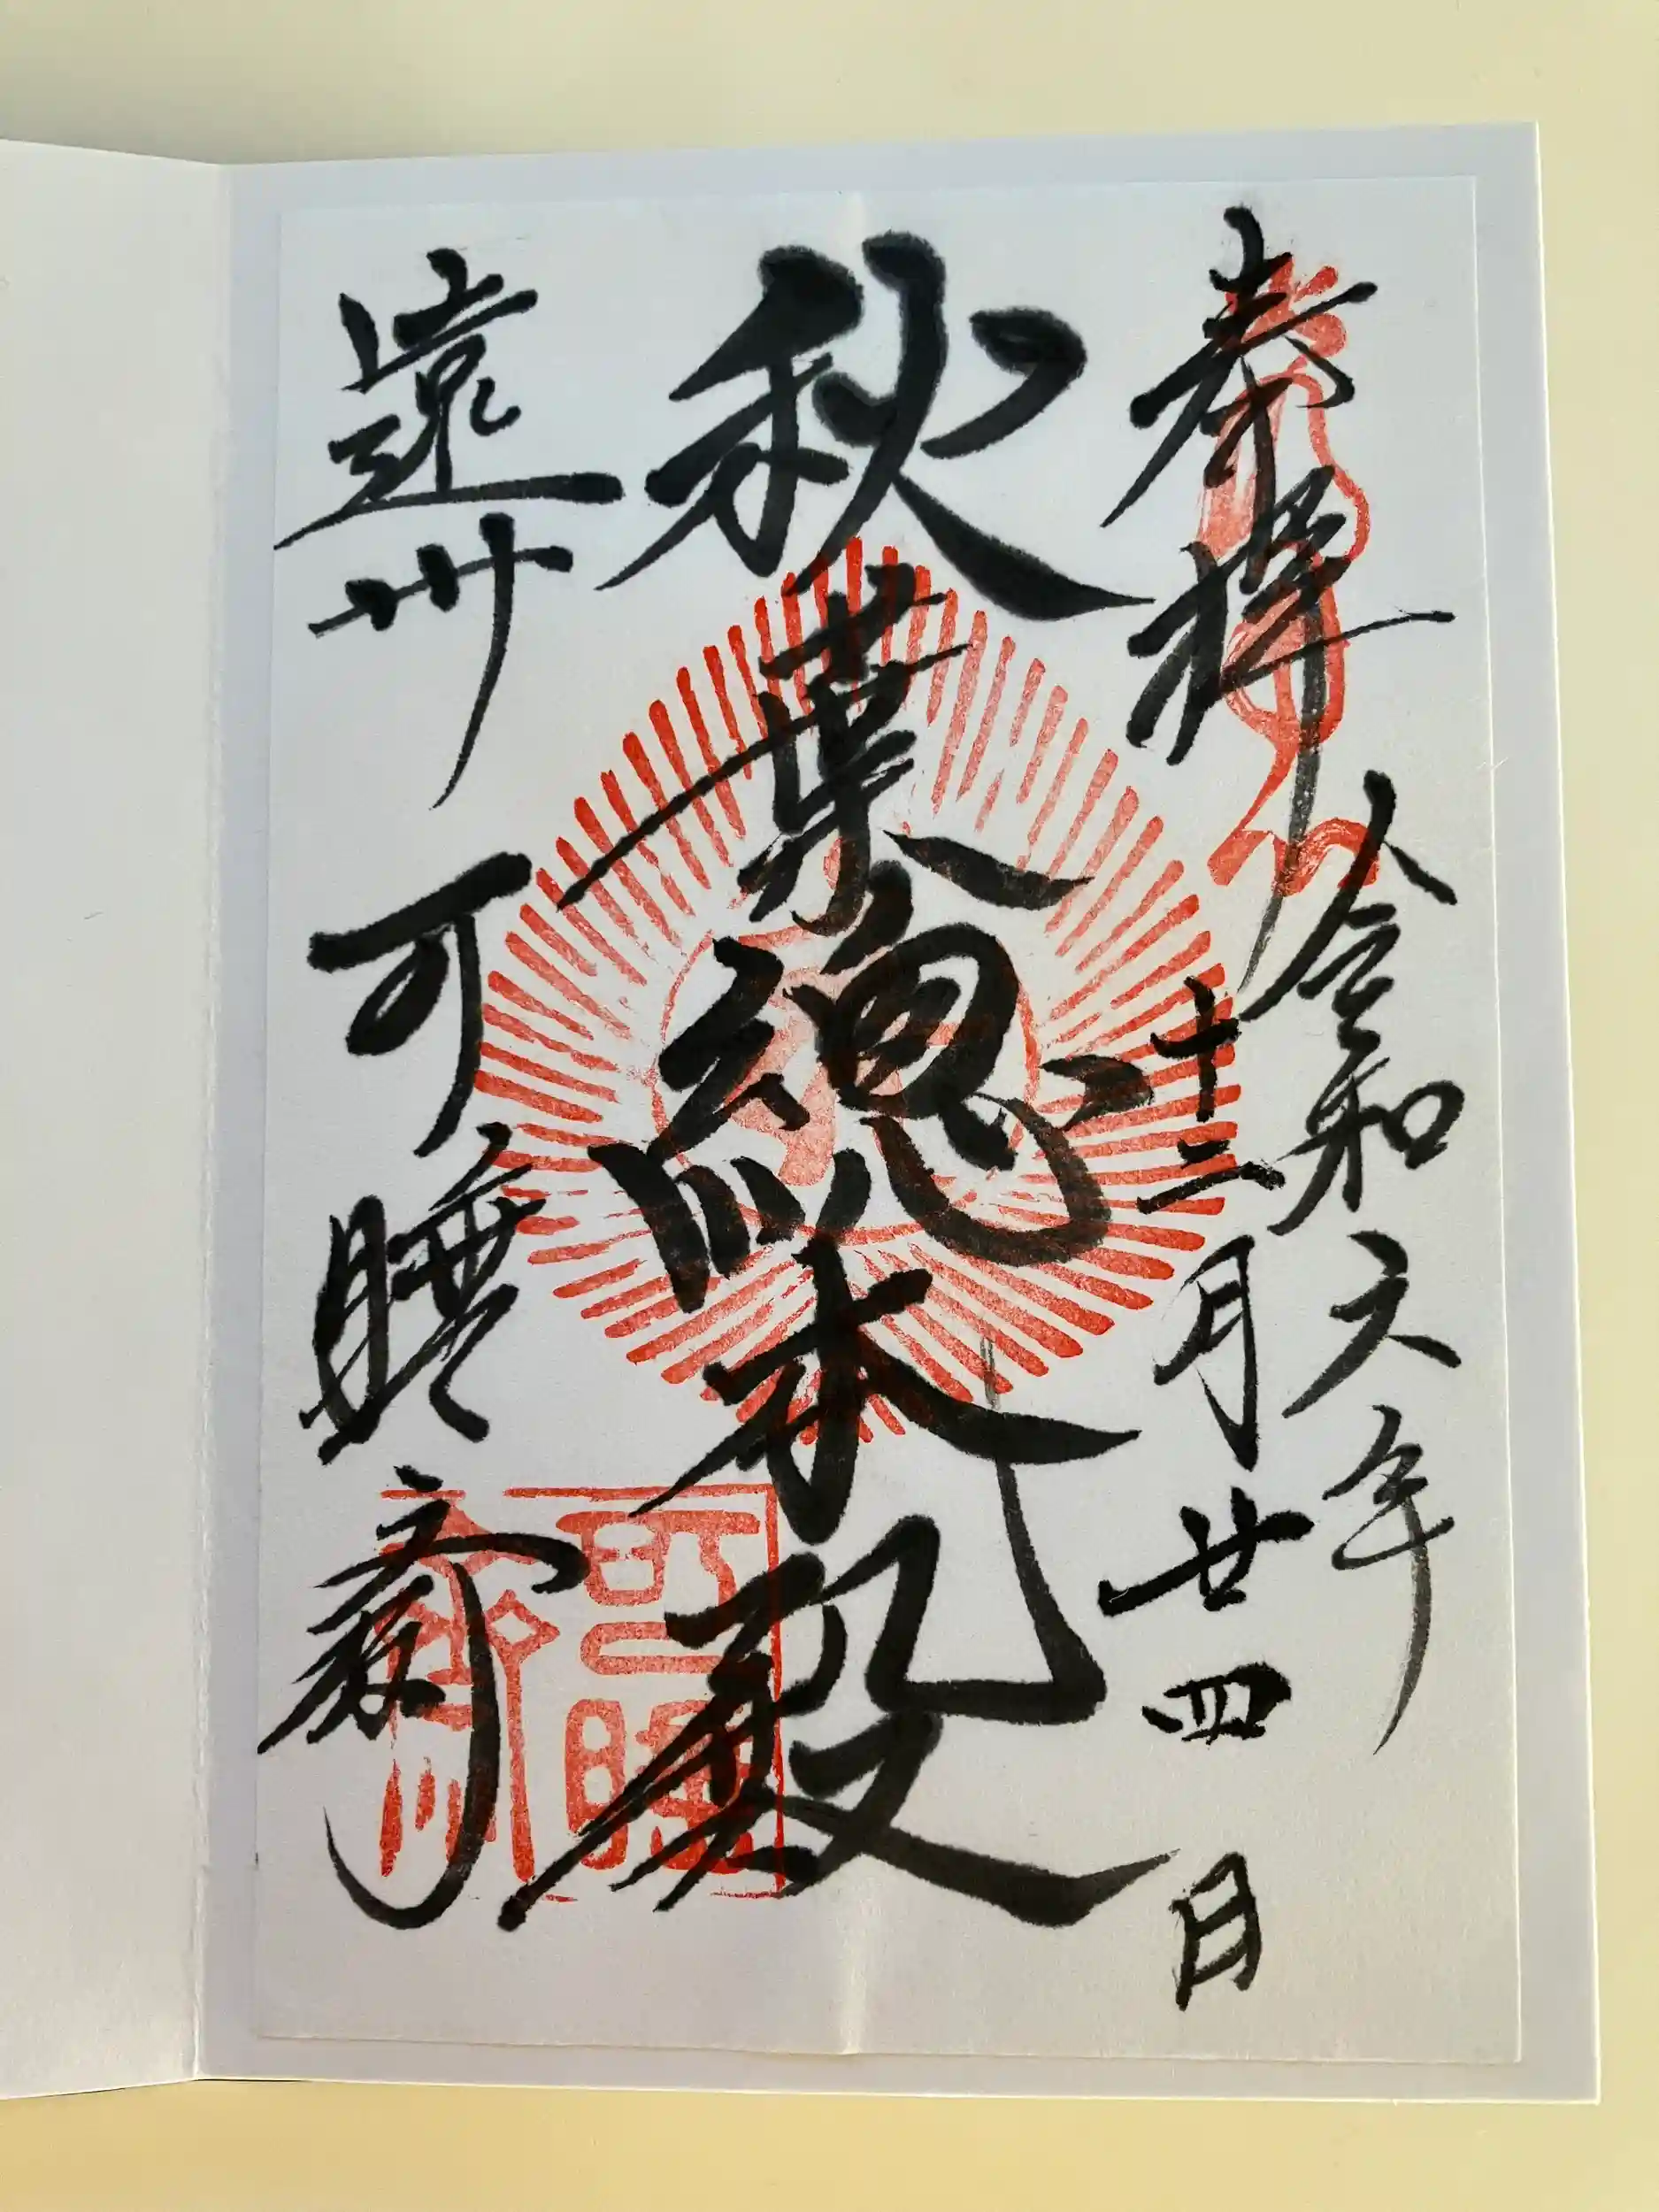 奉拝
令和六年
十二月廿四日
秋葉總本殿
遠州
可睡斎
可睡
齋